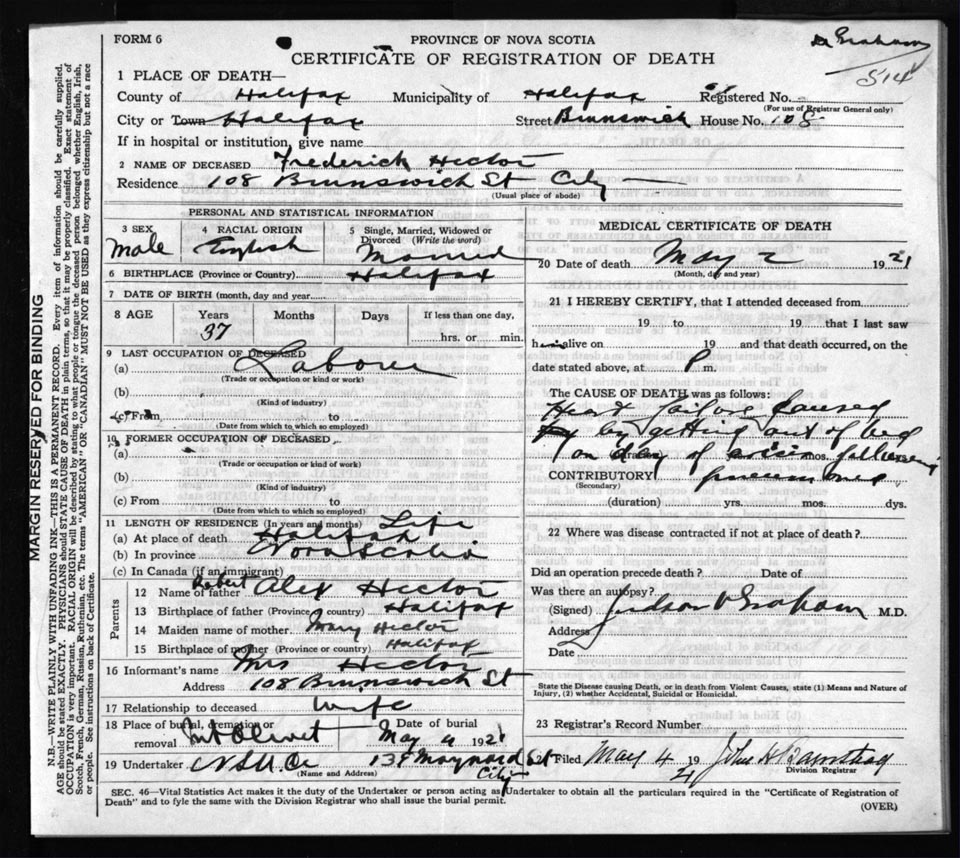 FORM 6
PROVINCE OF NOVA SCOTIA
Dr Graham
CERTIFICATE OF REGISTRATION OF DEATH
514
1 PLACE OF DEATH—
County of Halifax Municipality of Halifax Registered No.
(For use of Registrar General only)
City or Town Halifax Street Brunswick House No. 108
If in hospital or institution, give name
2 NAME OF DECEASED Frederick Hector
Residence 108 Brunswick St City
(Usual place of abode)
PERSONAL AND STATISTICAL INFORMATION
3 SEX 4 RACIAL ORIGIN 5 Single, Married, Widowed or Divorced (Write the word)
Male English Married
6 BIRTHPLACE (Province or Country) Halifax
7 DATE OF BIRTH (month, day and year)
8 AGE Years Months Days If less than one day,
37 hrs. or min.
9 LAST OCCUPATION OF DECEASED
(a) Laborer
(Trade or occupation or kind or work)
(b)
(Kind of industry)
(c) From to
(Date from which to which so employed)
10 FORMER OCCUPATION OF DECEASED
(a)
(Trade or occupation or kind of work)
(b)
(Kind of industry)
(c) From to
(Date from which to which so employed)
11 LENGTH OF RESIDENCE (In years and months) Life
(a) At place of death Halifax
(b) In province Nova Scotia
(c) In Canada (if an immigrant)
Parents
12 Name of father Robert Alex Hector
13 Birthplace of father (Province or country) Halifax
14 Maiden name of mother Mary Hector
15 Birthplace of mother (Province or country) Halifax
16 Informant's name Mrs Hector
Address 108 Brunswick St
17 Relationship to deceased Wife
18 Place of burial, cremation or removal Mt Olivet Date of burial May 4 1921
19 Undertaker N S U Co 137 Maynard St City
(Name and Address)
MEDICAL CERTIFICATE OF DEATH
20 Date of death May 2 1921
(Month, day and year)
21 I HEREBY CERTIFY, that I attended deceased from
19 to 19 that I last saw
h alive on 19 and that death occurred, on the
date stated above, at P m.
The CAUSE OF DEATH was as follows:
Heart failure caused
by getting out of bed
on day of crisis following
mos.
CONTRIBUTORY pneumonia
(Secondary)
(duration) yrs. mos. dys.
22 Where was disease contracted if not at place of death?
Did an operation precede death? Date of
Was there an autopsy?
(Signed) Judson V Graham M.D.
Address
Date
State the Disease causing Death, or in death from Violent Causes, state (1) Means and Nature of Injury, (2) whether Accidental, Suicidal or Homicidal.
23 Registrar's Record Number
24 Filed May 4 1921 John A
Division Registrar
SEC. 46—Vital Statistics Act makes it the duty of the Undertaker or person acting as Undertaker to obtain all the particulars required in the "Certificate of Registration of
Death" and to fyle the same with the Division Registrar who shall issue the burial permit.
(OVER)
MARGIN RESERVED FOR BINDING
N.B.—WRITE PLAINLY WITH UNFADING INK—THIS IS A PERMANENT RECORD. Every item of information should be carefully supplied.
AGE should be stated EXACTLY. PHYSICIANS should STATE CAUSE OF DEATH in plain terms, so that it may be properly classified. Exact statement of
OCCUPATION is very important. RACIAL ORIGIN will be described by stating to what people or tongue the deceased person belonged whether English, Irish,
Scotch, French, German, Russian, Ruthenian, etc. The terms "AMERICAN" or "CANADIAN" MUST NOT BE USED as they express citizenship but not a race
or people. See instructions on back of Certificate.